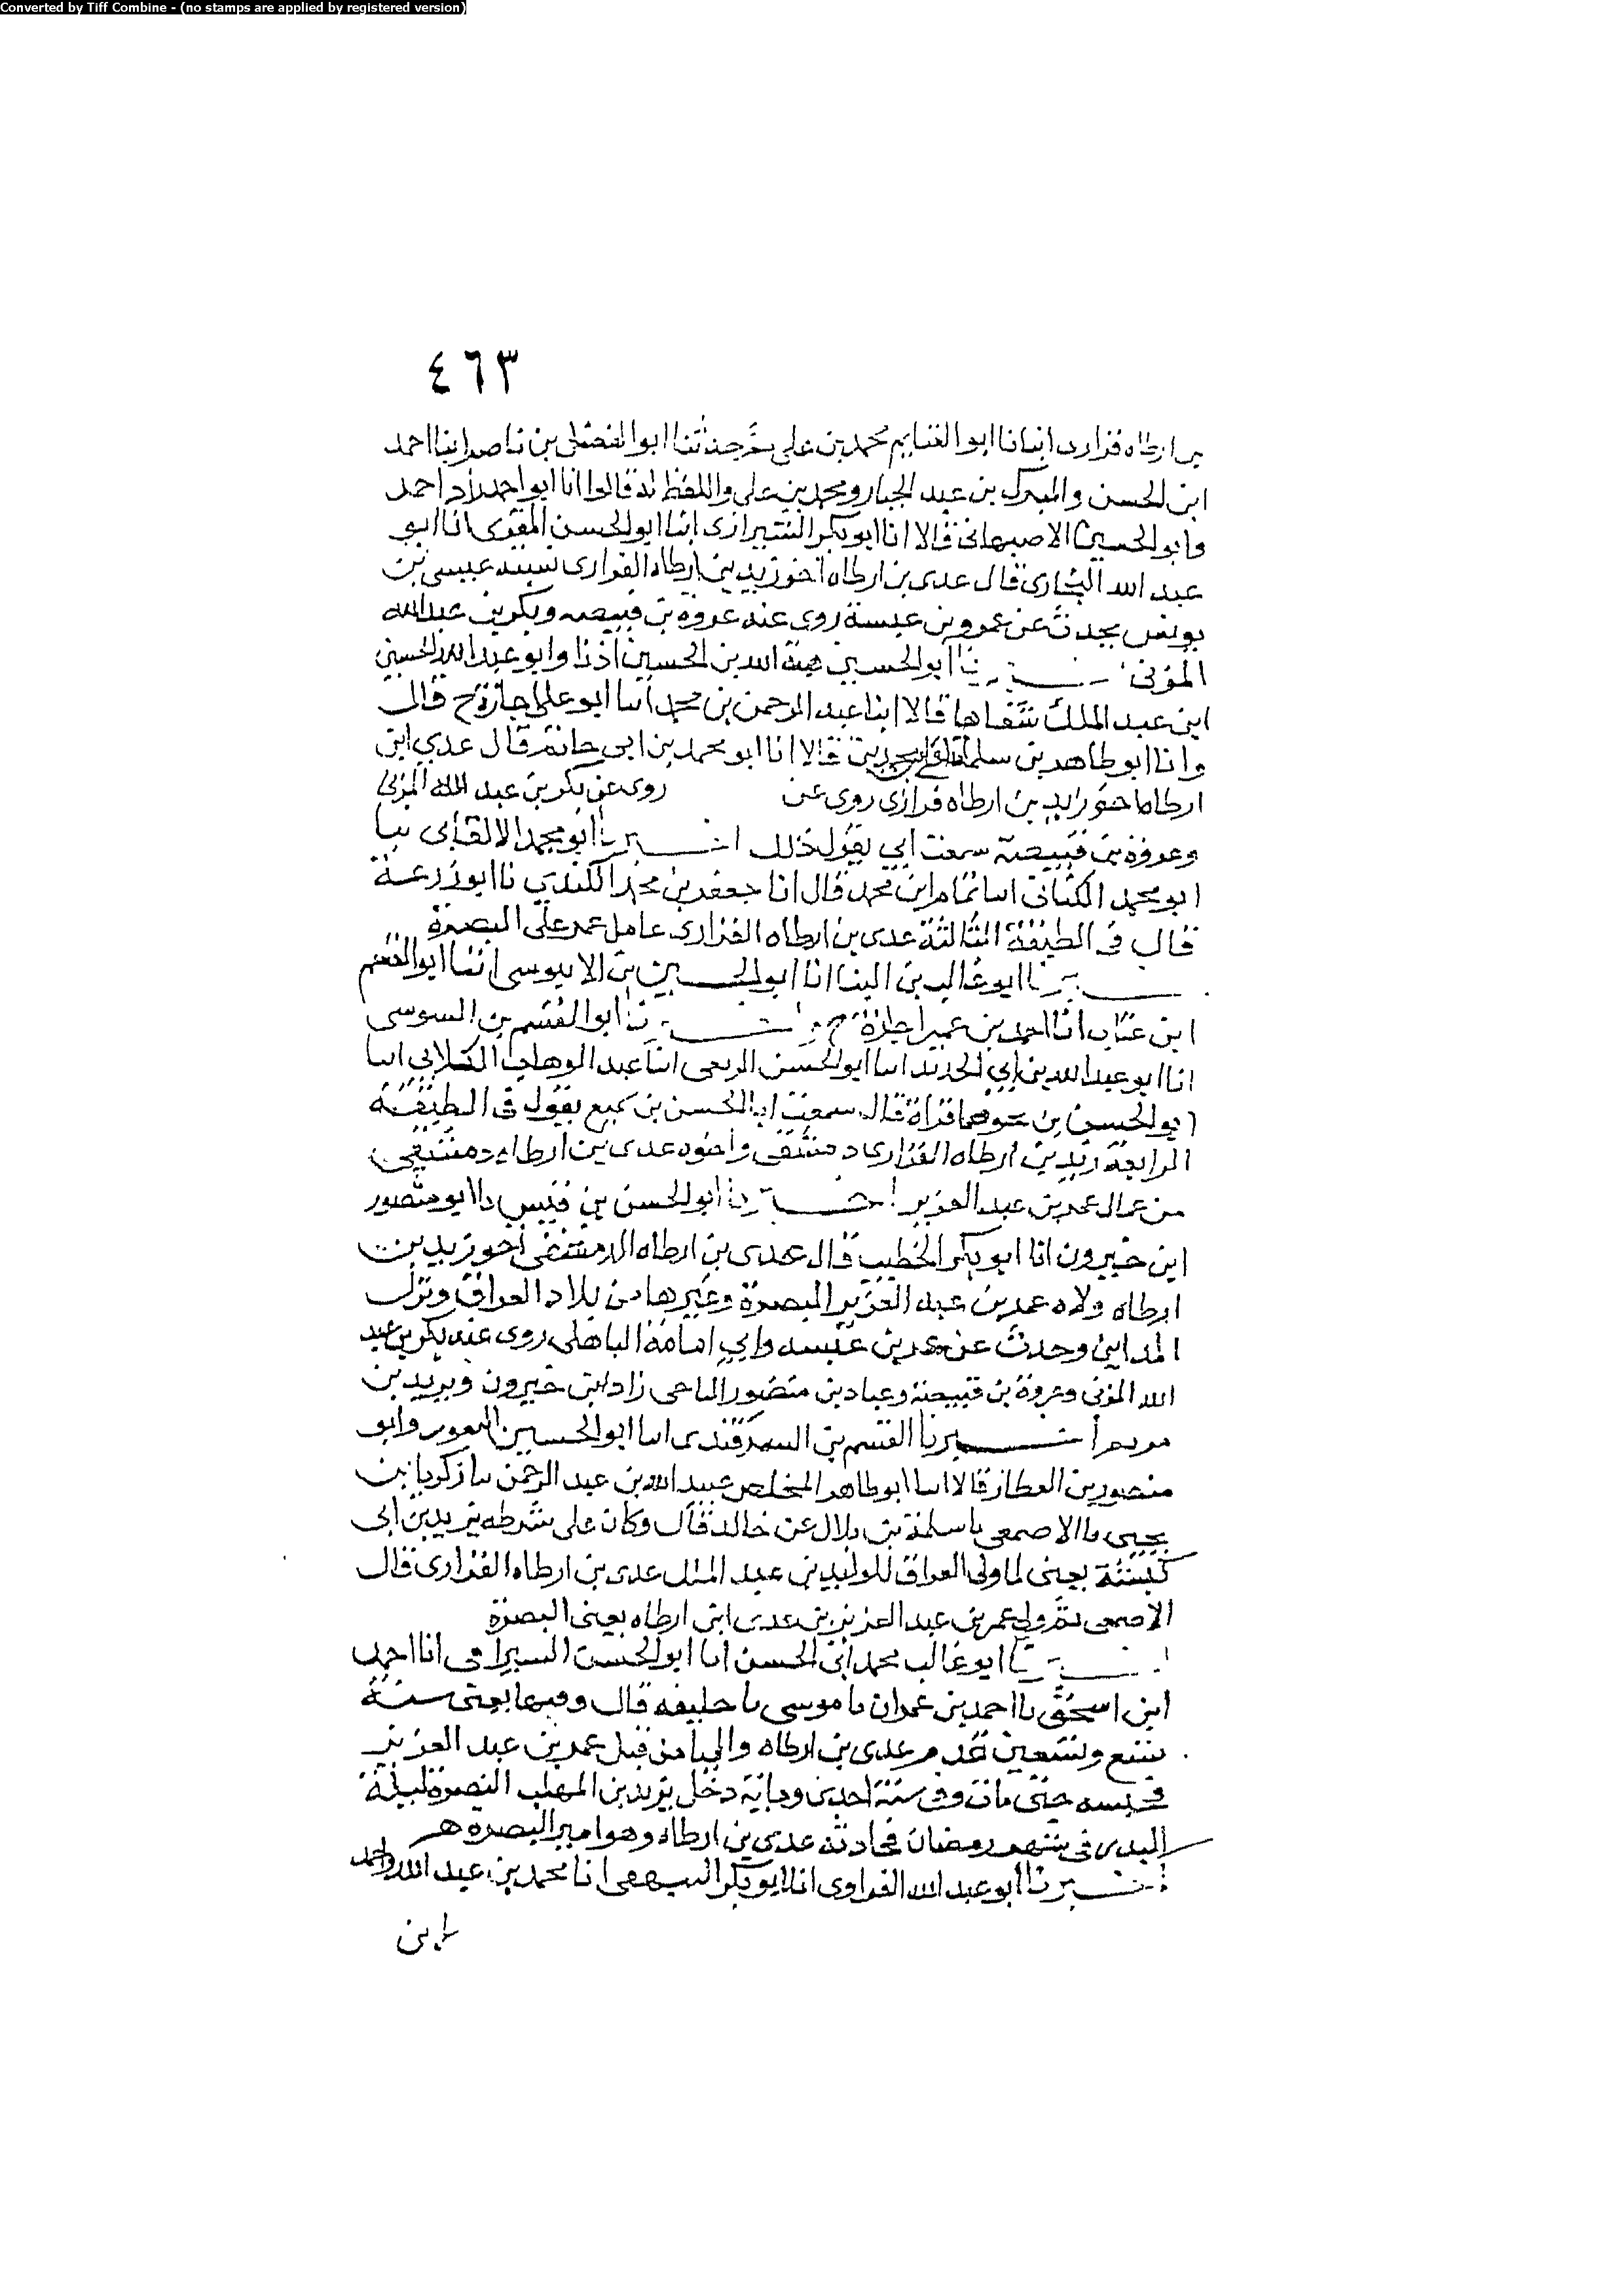 Converted by Tiff Combine - (no stamps are applied by registered version)
٤٦٣
بن ارطاه فزارى انبانا ابو الغنايم محمد بن على ثم حدثنا ابو الفضل بن ناصر ابنا احمد
ابن الحسن والمبرك بن عبد الجبار ومحمد بن على واللفظ له قالوا انا ابو احمد زاد احمد
وابو الحسين الاصبهانى قالا انا ابو بكر الشيرازى ابنا ابو الحسن المقرى انا ابو
عبد الله البخارى قال عدى بن ارطاه اخو زيد بن ارطاه الفزارى نسبه عيسى بن
يونس يحدث عن عمرو بن عبسة روى عنه عروة بن قبيصه وبكر بن عبد الله
المزنى نا ابو الحسين هبة الله بن الحسين اذنا وابو عبد الله الحسين
ابن عبد الملك شفاها قالا ابنا عبد الرحمن بن محمد انبا ابو على اجازة ح قال
وانا ابو طاهر بن سلمة قالا انا ابو محمد بن ابى حاتم قال عدي ابن
ارطاه اخو زايد بن ارطاه فزارى روى عن روى عن بكر بن عبد الله المزنى
وعروة بن قبيصة سمعت ابي يقول ذلك اخبرنا ابو محمد الاكفانى نبا
ابو محمد الكتانى انبا تمام ابن محمد قال انا جعفر بن محمد الكندي نا ابو زرعة
قال فى الطبقة الثالثة عدى بن ارطاه الفزارى عامل عمر على البصرة
اخبرنا ابو غالب بن البنا انا ابو الحسين بن الابنوسى انبا ابو القسم
ابن عتاب انا احمد بن عمير اجازة ح واخبرنا ابو القسم بن السوسى
انا ابو عبد الله بن ابي الحديد انبا ابو الحسن الربعى انبا عبد الوهاب الكلابي انبا
ابو الحسن بن جوصا قراة قال سمعت ابا الحسن بن سميع يقول فى الطبقة
الرابعة زيد بن ارطاه الفزارى دمشقى واخوه عدى بن ارطاه دمشقى
من عمال عمر بن عبد العزيز اخبرنا ابو الحسن بن قبيس نا ابو منصور
ابن خيرون انا ابو بكر الخطيب قال عدى بن ارطاه الدمشقى اخو زيد بن
ارطاه ولاه عمر بن عبد العزيز البصرة وغيرها من بلاد العراق ونزل
المداين وحدث عن عمرو بن عبسه وابي امامة الباهلى روى عنه بكر بن عبد
الله المزنى وعروة بن قبيصة وعباد بن منصور الناجى زاد ابن خيرون ويريد بن
مريم اخبرنا القسم بن السمرقندى انبا ابو الحسين النقور وابو
منصور بن العطار قالا انبا ابو طاهر المخلص عبيد الله بن عبد الرحمن نا زكريا بن
يحيى نا الاصمعى نا سلمة بن بلال عن خالد قال وكان على شرطه يزيد بن ابى
كبشة يعنى لما ولى العراق للوليد بن عبد الملك عدى بن ارطاه الفزارى قال
الاصمعى ثم ولى عمر بن عبد العزيز بن عدى ابن ارطاه يعنى البصرة
اخبرنا ابو غالب محمد ابن الحسن انا ابو الحسن السيرافى انا احمد
ابن اسحق نا احمد بن عمران نا موسى نا خليفه قال وفيها يعنى سنة
تسع وتسعين قدم عدى بن ارطاه واليا من قبل عمر بن عبد العزيز
حتى مات وفى سنة احدى وماية دخل يزيد بن المهلب البصرة ليلة
البدر فى شهر رمضان عدى بن ارطاه وهو امير البصره
اخبرنا ابو عبد الله الفراوى انا ابو بكر البيهقى انا محمد بن عبد الله واحمد
ابن